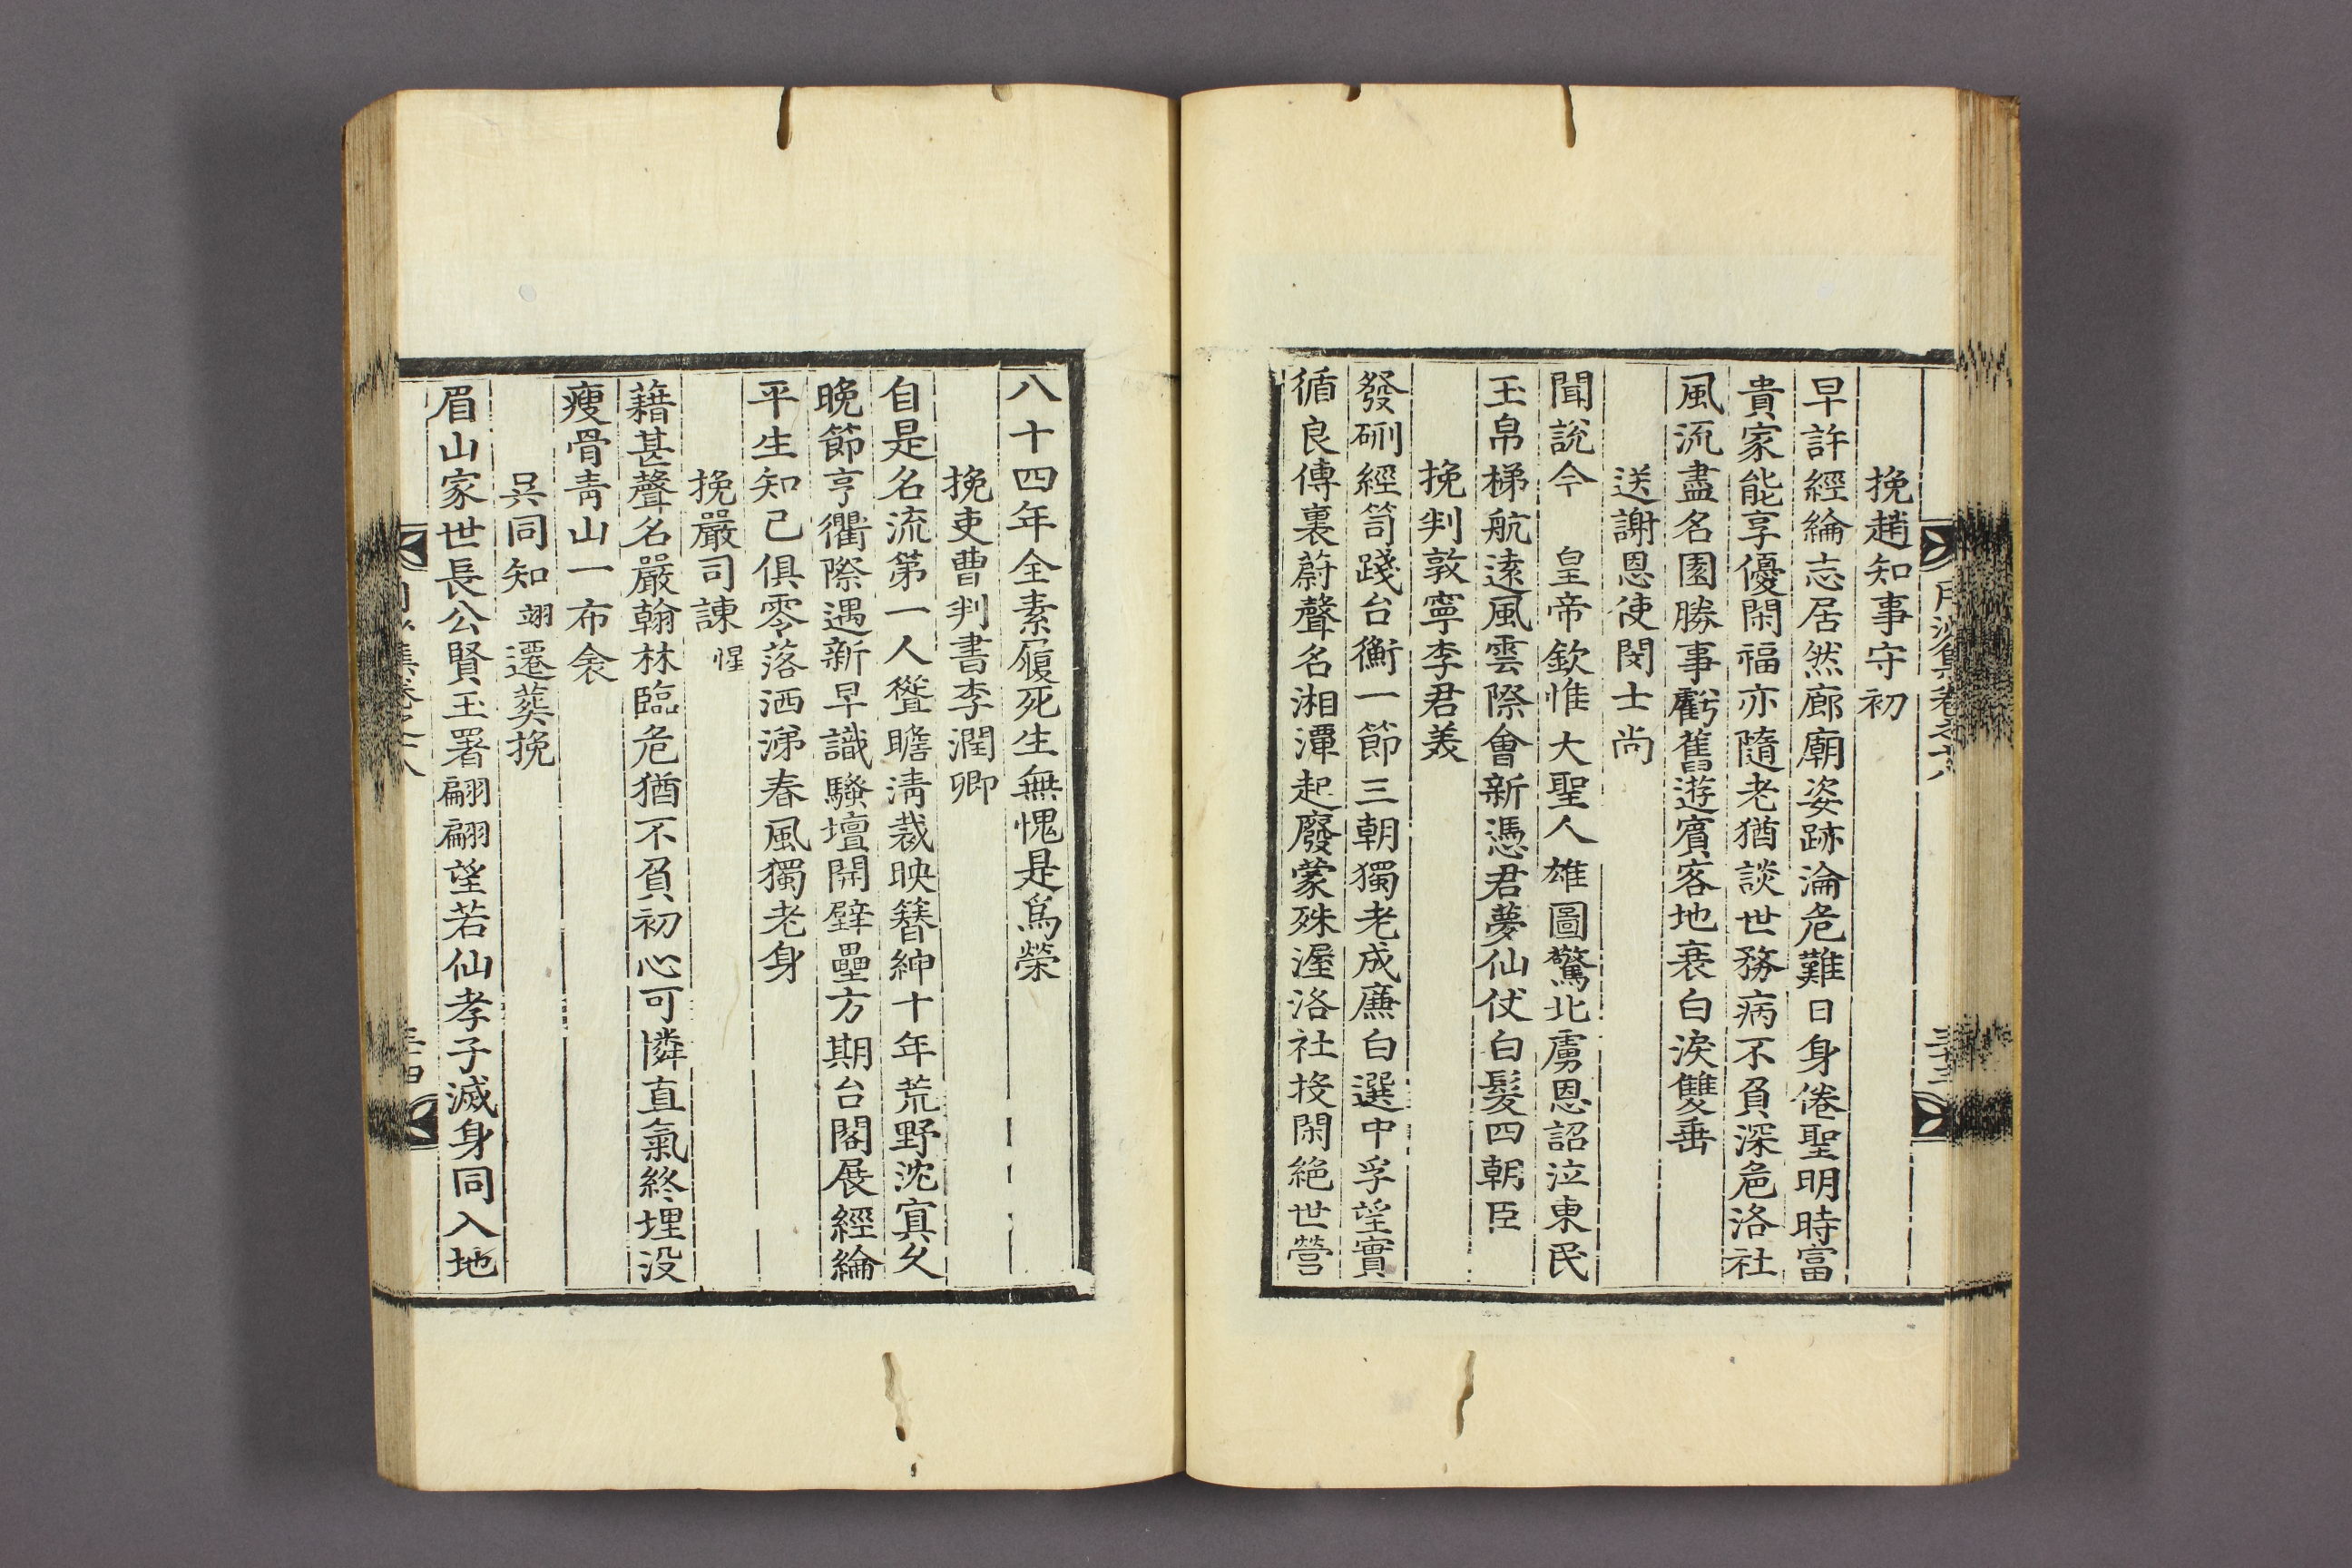 月沙集卷之十八
三十三
挽趙知事守初
早許經綸志居然廊廟姿跡淪危難日身倦聖明時富
貴家能享優閑福亦隨老猶談世務病不負深巵洛社
風流盡名園勝事虧舊遊賓客地衰白淚雙垂
送謝恩使閔士尚
聞說今 皇帝欽惟大聖人雄圖驚北虜恩詔泣東民
玉帛梯航遠風雲際會新憑君夢仙仗白髮四朝臣
挽判敦寧李君美
發硎經笥踐台衡一節三朝獨老成廉白選中孚望實
循良傳裏蔚聲名湘潭起廢蒙殊渥洛社投閑絶世營
八十四年全素履死生無愧是爲榮
挽吏曹判書李潤卿
自是名流第一人聳瞻淸裁映簪紳十年荒野沈冥久
晩節亨衢際遇新早識騷壇開壁壘方期台閣展經綸
平生知己俱零落洒涕春風獨老身
挽嚴司諫惺
藉甚聲名嚴翰林臨危猶不負初心可憐直氣終埋沒
瘦骨靑山一布衾
吳同知翊遷葬挽
眉山家世長公賢玉署翩翩望若仙孝子滅身同入地